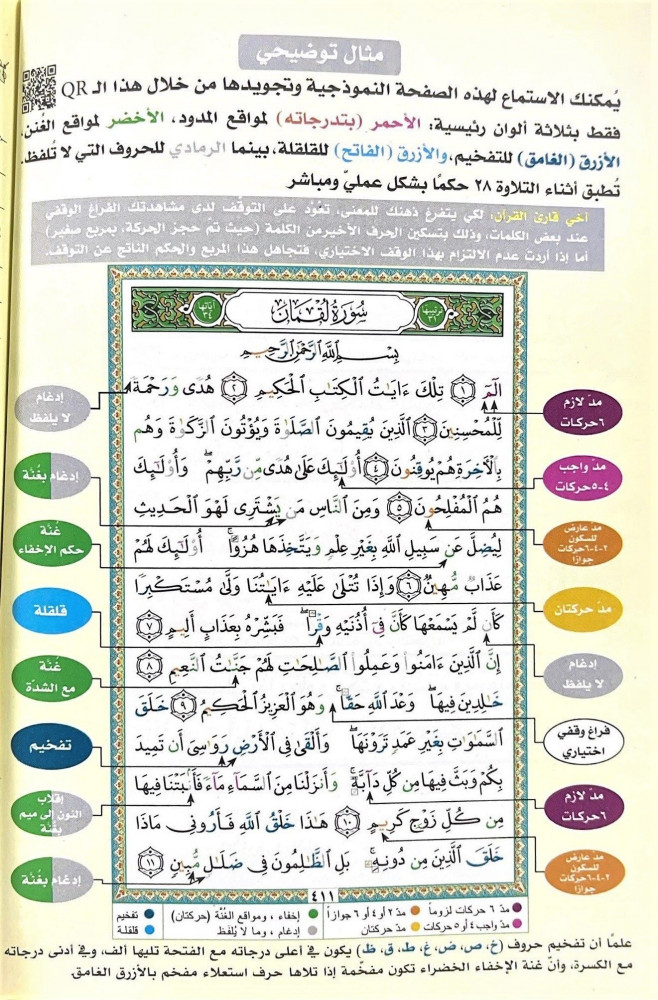 مثال توضيحي
يُمكنك الاستماع لهذه الصفحة النموذجية وتجويدها من خلال هذا الـ QR
فقط بثلاثة ألوان رئيسية: الأحمر (بتدرجاته) لمواقع المدود، الأخضر لمواقع الغُنن،
الأزرق (الغامق) للتفخيم، والأزرق (الفاتح) للقلقلة، بينما الرمادي للحروف التي لا تُلفظ.
تُطبق أثناء التلاوة ٢٨ حكمًا بشكل عمليّ ومباشر
أخي قارئ القرآن: لكي يتفرغ ذهنك للمعنى، تعَوّد على التوقّف لدى مشاهدتك الفراغ الوقفي
عند بعض الكلمات، وذلك بتسكين الحرف الأخير من الكلمة (حيث تم حجز الحركة، بمربع صغير)
أما إذا أردت عدم الالتزام بهذا الوقف الاختياري، فتجاهل هذا المربع والحكم الناتج عن التوقف.
ترتيبها ٣١
سُورَةُ لُقْمَان
آياتها ٣٤
بِسْمِ اللَّهِ الرَّحْمَٰنِ الرَّحِيمِ
الٓمٓ ١ تِلْكَ ءَايَٰتُ الْكِتَٰبِ الْحَكِيمِ ٢ هُدًى وَرَحْمَةً
لِّلْمُحْسِنِينَ ٣ الَّذِينَ يُقِيمُونَ الصَّلَوٰةَ وَيُؤْتُونَ الزَّكَوٰةَ وَهُم
بِالْءَاخِرَةِ هُمْ يُوقِنُونَ ٤ أُوْلَٰٓئِكَ عَلَىٰ هُدًى مِّن رَّبِّهِمْ ۖ وَأُوْلَٰٓئِكَ
هُمُ الْمُفْلِحُونَ ٥ وَمِنَ النَّاسِ مَن يَشْتَرِى لَهْوَ الْحَدِيثِ
لِيُضِلَّ عَن سَبِيلِ اللَّهِ بِغَيْرِ عِلْمٍ وَيَتَّخِذَهَا هُزُوًا ۚ أُوْلَٰٓئِكَ لَهُمْ
عَذَابٌ مُّهِينٌ ٦ وَإِذَا تُتْلَىٰ عَلَيْهِ ءَايَٰتُنَا وَلَّىٰ مُسْتَكْبِرًا
كَأَن لَّمْ يَسْمَعْهَا كَأَنَّ فِىٓ أُذُنَيْهِ وَقْرًا ۖ فَبَشِّرْهُ بِعَذَابٍ أَلِيمٍ ٧
إِنَّ الَّذِينَ ءَامَنُوا وَعَمِلُوا الصَّٰلِحَٰتِ لَهُمْ جَنَّٰتُ النَّعِيمِ ٨
خَٰلِدِينَ فِيهَا ۖ وَعْدَ اللَّهِ حَقًّا ۚ وَهُوَ الْعَزِيزُ الْحَكِيمُ ٩ خَلَقَ
السَّمَٰوَٰتِ بِغَيْرِ عَمَدٍ تَرَوْنَهَا ۖ وَأَلْقَىٰ فِى الْأَرْضِ رَوَٰسِىَ أَن تَمِيدَ
بِكُمْ وَبَثَّ فِيهَا مِن كُلِّ دَآبَّةٍ ۚ وَأَنزَلْنَا مِنَ السَّمَآءِ مَآءً فَأَنۢبَتْنَا فِيهَا
مِن كُلِّ زَوْجٍ كَرِيمٍ ١٠ هَٰذَا خَلْقُ اللَّهِ فَأَرُونِى مَاذَا
خَلَقَ الَّذِينَ مِن دُونِهِ ۚ بَلِ الظَّٰلِمُونَ فِى ضَلَٰلٍ مُّبِينٍ ١١
٤١١
مدّ لازم
٦ حركات
مدّ واجب
٤-٥ حركات
مدّ عارض
للسكون
٢-٤-٦ حركات
جوازًا
مدّ حركتان
إدغام
لا يلفظ
فراغ وقفي
اختياري
مدّ لازم
٦ حركات
مدّ عارض
للسكون
٢-٤-٦ حركات
جوازًا
إدغام
لا يلفظ
إدغام بغُنّة
غُنّة
حكم الإخفاء
قلقلة
غُنّة
مع الشدّة
تفخيم
إقلاب
النون إلى ميم
بغُنّة
إدغام بغُنّة
مدّ ٦ حركات لزوماً
مدّ ٢ أو ٤ أو ٦ جوازاً
إخفاء، ومواقع الغُنّة (حركتان)
تفخيم
مدّ واجب ٤ أو ٥ حركات
مدّ حركتان
إدغام، وما لا يُلفَظ
قلقلة
علمًا أن تفخيم حروف (خ، ص، ض، غ، ط، ق، ظ) يكون في أعلى درجاته مع الفتحة تليها ألف، وفي أدنى درجاته
مع الكسرة، وأنّ غنة الإخفاء الخضراء تكون مفخّمة إذا تلاها حرف استعلاء مفخم بالأزرق الغامق.